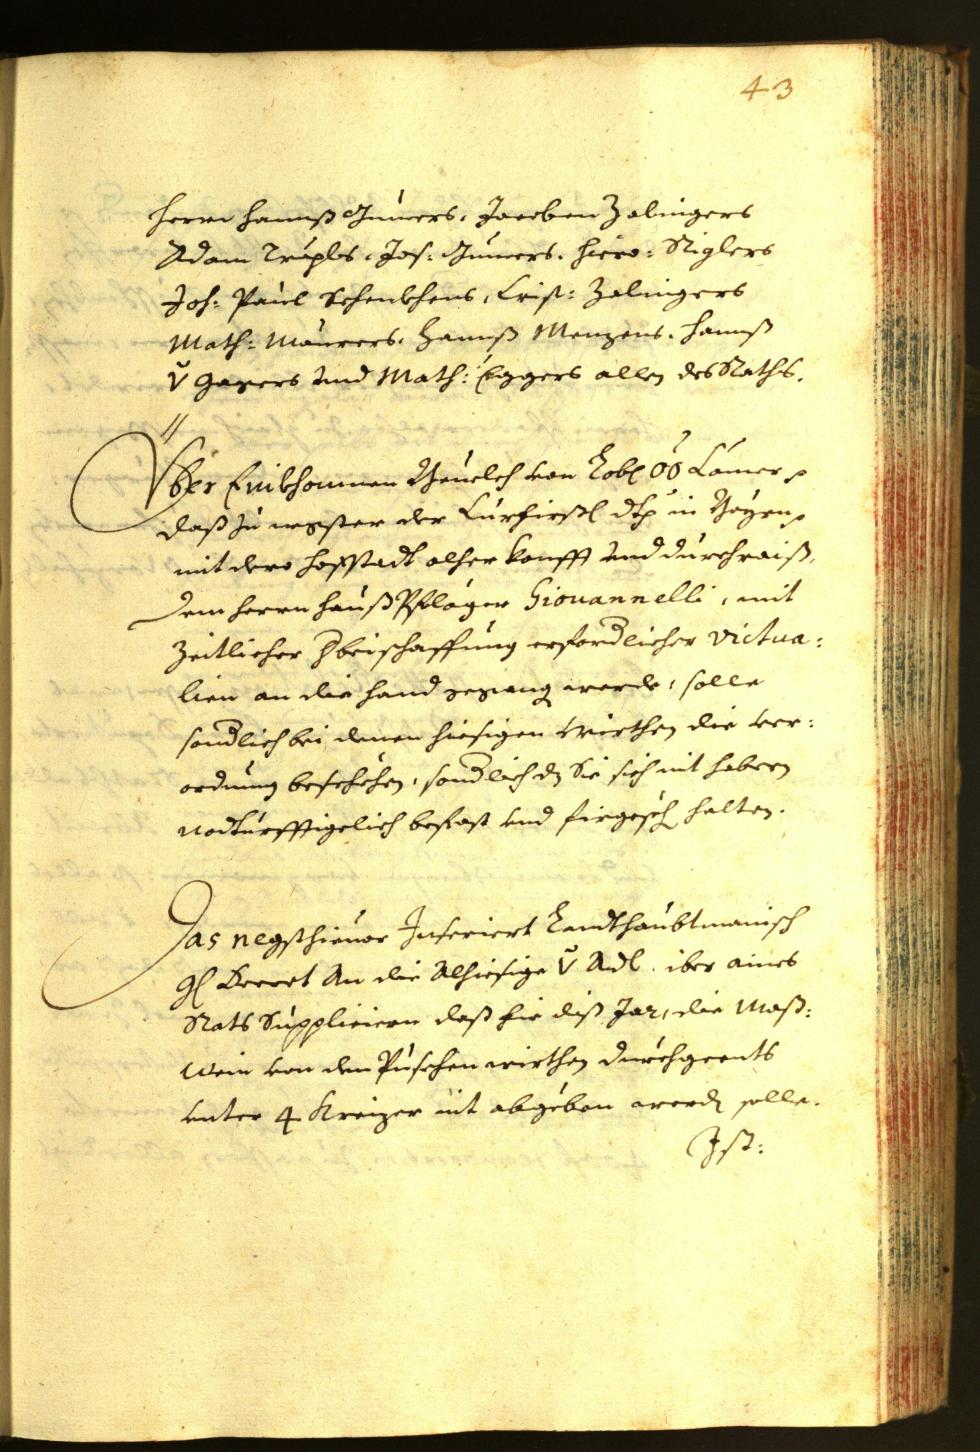 43
Herrn Hannß Gumers, Jacoben Zalingers
Adam Trüplss, Jos: Gumers, Hiero: Riglers
Joh: Paul Schenkhens, Crist: Zalingers
Math: Maurers, Hannß Menzens, Hannß
V Gazers und Math: Eggers allen des Raths.
Über Einkhommen Beuelch von Lobl OÖ Camer
daß zu negster der Curfirstl dht in Bayrn
mit dero Hoffstadt alher kombt und durchraiß,
dem Herrn HaußPfleger Giouannelli, mit
Zeitlicher beischaffung erforderlicher Victua:
lien an die Hand gegang werde, solle
sonderlich bei denen hiesigen Würthen die ver:
ordnung beschehen, sonderlich dz Sie sich mit habern
nodturfftigelich befast und firgesech halten.
Das negsthieuor Inseriert Landtshaubtmanisch
gl Decret An die Alhiesige V Adl. iber aines
Rats Suppliciern daß fir diß Jar, die Maß:
Wein von den Puschenwirthen durchgeents
unter 4 Kreizer nit abgeben werdn solle.
Ist: